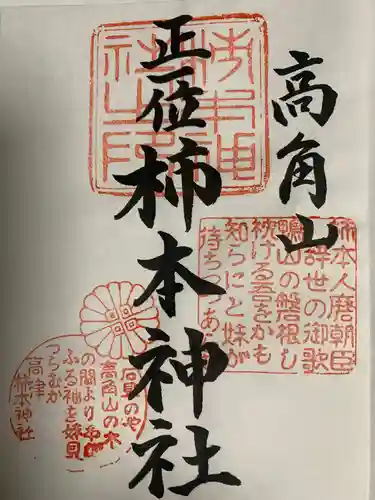 高角山
正一位
柿本神社
柿本人麿朝臣
辞世の御歌
鴨山の磐根し
枕ける吾をかも
知らにと妹が
待ちつつあ
石見のや
高角山の木
の間より
ふる袖を妹見
つらむか
高津
柿本神社